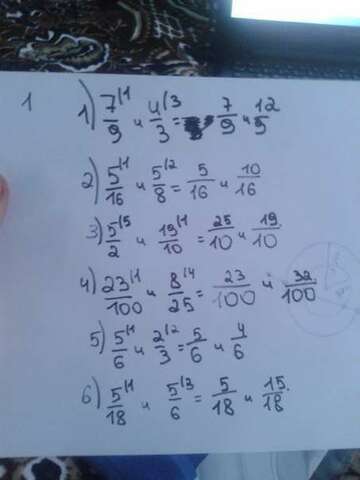 1
1) 7/9 |1 и 4/3 |3 = 7/9 и 12/9
2) 5/16 |1 и 5/8 |2 = 5/16 и 10/16
3) 5/2 |5 и 19/10 |1 = 25/10 и 19/10.
4) 23/100 |1 и 8/25 |4 = 23/100 и 32/100
5) 5/6 |1 и 2/3 |2 = 5/6 и 4/6
6) 5/18 |1 и 5/6 |3 = 5/18 и 15/18.